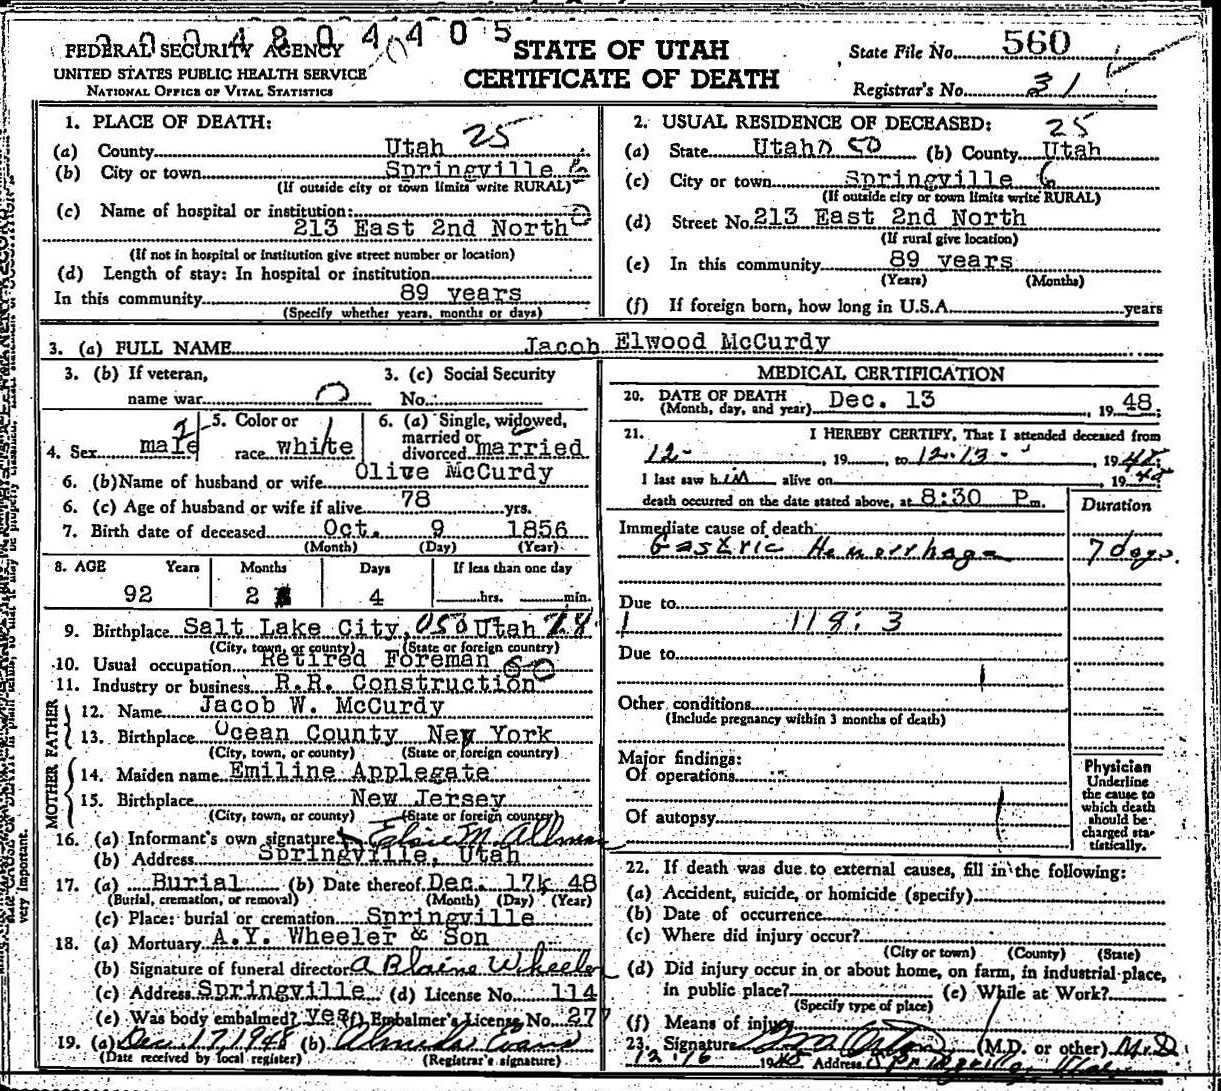 004804405
FEDERAL SECURITY AGENCY
UNITED STATES PUBLIC HEALTH SERVICE
NATIONAL OFFICE OF VITAL STATISTICS
STATE OF UTAH
CERTIFICATE OF DEATH
State File No. 560
Registrar's No. 31
1. PLACE OF DEATH: 25
(a) County Utah
(b) City or town Springville 6
(If outside city or town limits write RURAL)
(c) Name of hospital or institution: 0
213 East 2nd North
(If not in hospital or institution give street number or location)
(d) Length of stay: In hospital or institution
In this community 89 years
(Specify whether years, months or days)
2. USUAL RESIDENCE OF DECEASED: 25
(a) State Utah (b) County Utah
(c) City or town Springville 6
(If outside city or town limits write RURAL)
(d) Street No. 213 East 2nd North
(If rural give location)
(e) In this community 89 years
(Years) (Months)
(f) If foreign born, how long in U.S.A. years
3. (a) FULL NAME Jacob Elwood McCurdy
3. (b) If veteran, name war 0
3. (c) Social Security No.
4. Sex male
5. Color or race white
6. (a) Single, widowed, married or divorced married
6. (b) Name of husband or wife Olive McCurdy
6. (c) Age of husband or wife if alive 78 yrs.
7. Birth date of deceased Oct. 9 1856
(Month) (Day) (Year)
8. AGE Years Months Days If less than one day
92 2 4 hrs. min.
9. Birthplace Salt Lake City, 050 Utah
(City, town, or county) (State or foreign country)
10. Usual occupation Retired Foreman
11. Industry or business R.R. Construction
FATHER
12. Name Jacob W. McCurdy
13. Birthplace Ocean County New York
(City, town, or county) (State or foreign country)
MOTHER
14. Maiden name Emiline Applegate
15. Birthplace New Jersey
(City, town, or county) (State or foreign country)
16. (a) Informant's own signature Elsie M. Allman
(b) Address Springville, Utah
17. (a) Burial (b) Date thereof Dec. 17 48
(Burial, cremation, or removal) (Month) (Day) (Year)
(c) Place: burial or cremation Springville
18. (a) Mortuary A.Y. Wheeler & Son
(b) Signature of funeral director A Blaine Wheeler
(c) Address Springville (d) License No. 114
(e) Was body embalmed? yes (f) Embalmer's License No. 277
19. (a) Dec 17, 1948 (b) Evans
(Date received by local register) (Registrar's signature)
MEDICAL CERTIFICATION
20. DATE OF DEATH Dec. 13, 1948
(Month, day, and year)
21. I HEREBY CERTIFY, That I attended deceased from
12- , 19 , to 12-13- , 1948;
I last saw him alive on 1948
death occurred on the date stated above, at 8:30 P.m.
Duration
Immediate cause of death
Gastric Hemorrhage 7 days.
Due to
118:3
Due to
Other conditions
(Include pregnancy within 3 months of death)
Major findings:
Of operations
Of autopsy
Physician
Underline
the cause to
which death
should be
charged sta-
tistically.
22. If death was due to external causes, fill in the following:
(a) Accident, suicide, or homicide (specify)
(b) Date of occurrence
(c) Where did injury occur?
(City or town) (County) (State)
(d) Did injury occur in or about home, on farm, in industrial place,
in public place? (e) While at Work?
(Specify type of place)
(f) Means of injury
23. Signature Orton (M.D. or other) M.D
12-16 1948 Address Springville, Utah
very important.